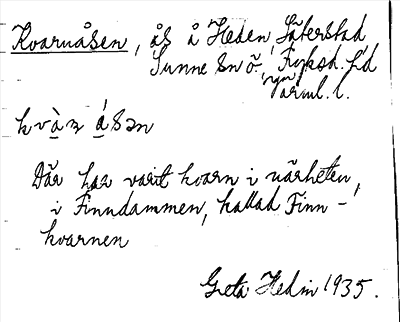 Kvarnåsen, ås å Heden, Säterstad
Sunne sn Ö, Fryksd. hd
Värml. l.
kvàṇ ásən
Där har varit kvarn i närheten,
i Finndammen, kallad Finn-
kvarnen
Greta Hedin 1935.